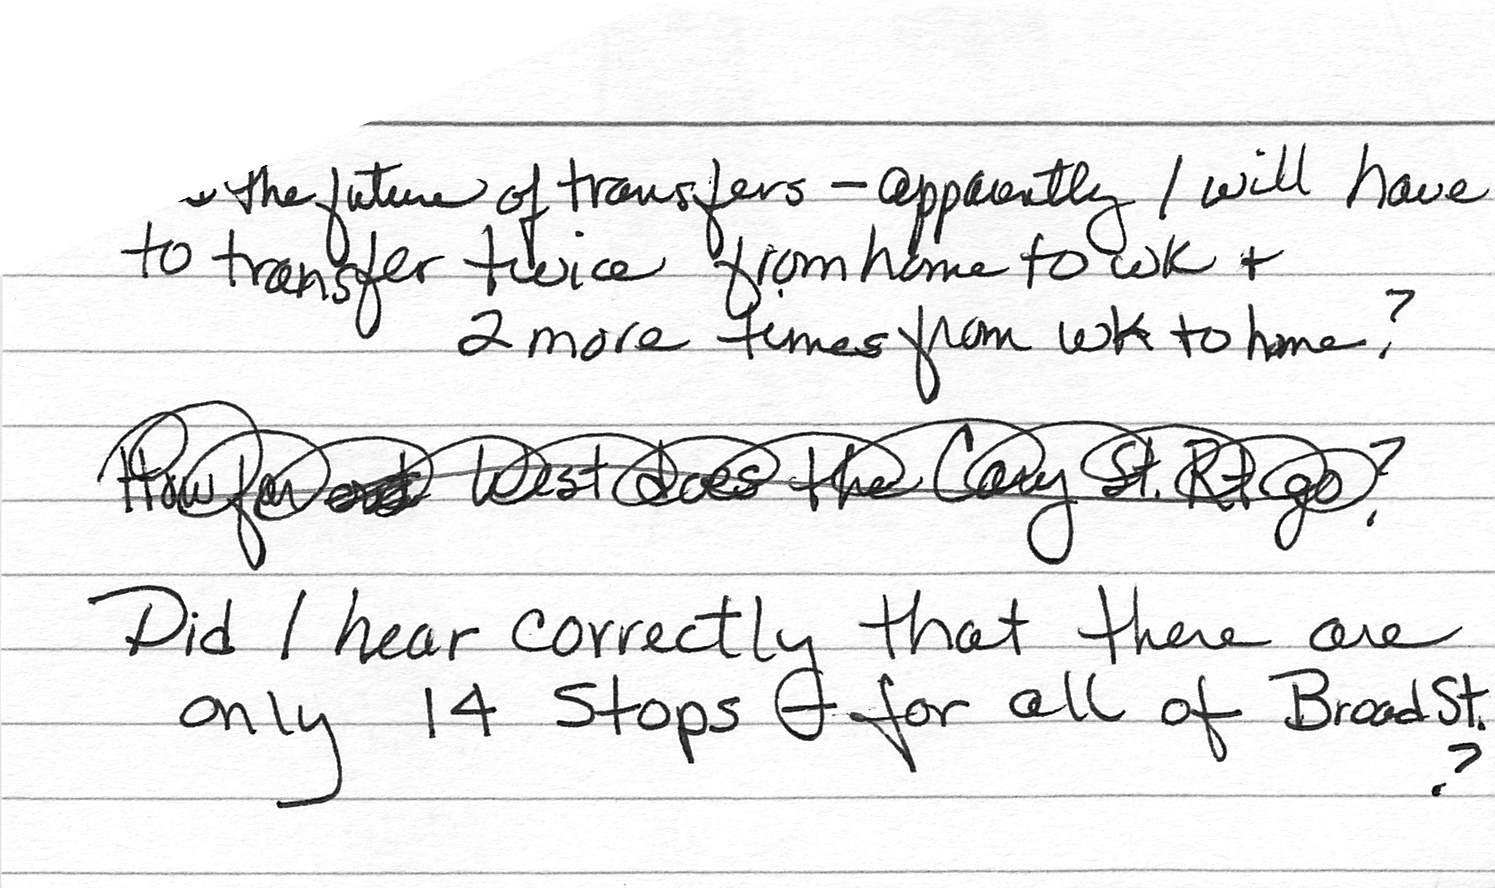 the future of transfers – apparently I will have
to transfer twice from home to wk +
2 more times from wk to home?
How far west does the Cary St. Rt go?
Did I hear correctly that there are
only 14 stops for all of Broad St.
?